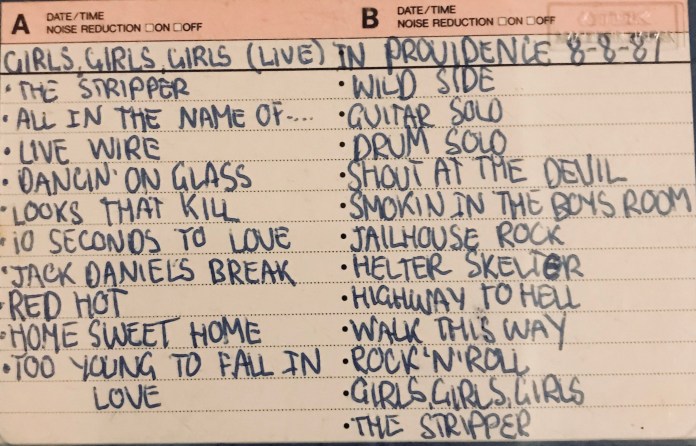 A DATE/TIME
NOISE REDUCTION □ON □OFF
B DATE/TIME
NOISE REDUCTION □ON □OFF
GIRLS, GIRLS, GIRLS (LIVE) IN PROVIDENCE 8-8-87
• THE STRIPPER
• ALL IN THE NAME OF....
• LIVE WIRE
• DANCIN' ON GLASS
• LOOKS THAT KILL
• 10 SECONDS TO LOVE
• JACK DANIEL'S BREAK
• RED HOT
• HOME SWEET HOME
• TOO YOUNG TO FALL IN
LOVE
• WILD SIDE
• GUITAR SOLO
• DRUM SOLO
• SHOUT AT THE DEVIL
• SMOKIN IN THE BOYS ROOM
• JAILHOUSE ROCK
• HELTER SKELTER
• HIGHWAY TO HELL
• WALK THIS WAY
• ROCK'N'ROLL
• GIRLS, GIRLS, GIRLS
• THE STRIPPER